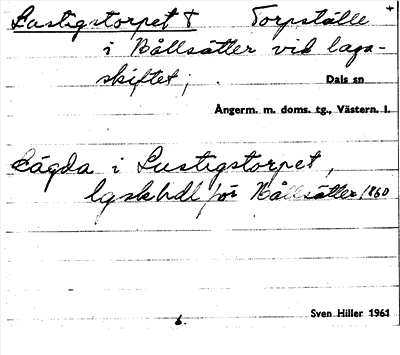 Lustigstorpet † Torpställe +
i Bållsätter vid laga-
skiftet; . Dals sn
Ångerm. m. doms. tg., Västern. l.
Lågda i Lustigstorpet,
lgskhdl för Bållsätter 1860
6.
Sven Hiller 1961